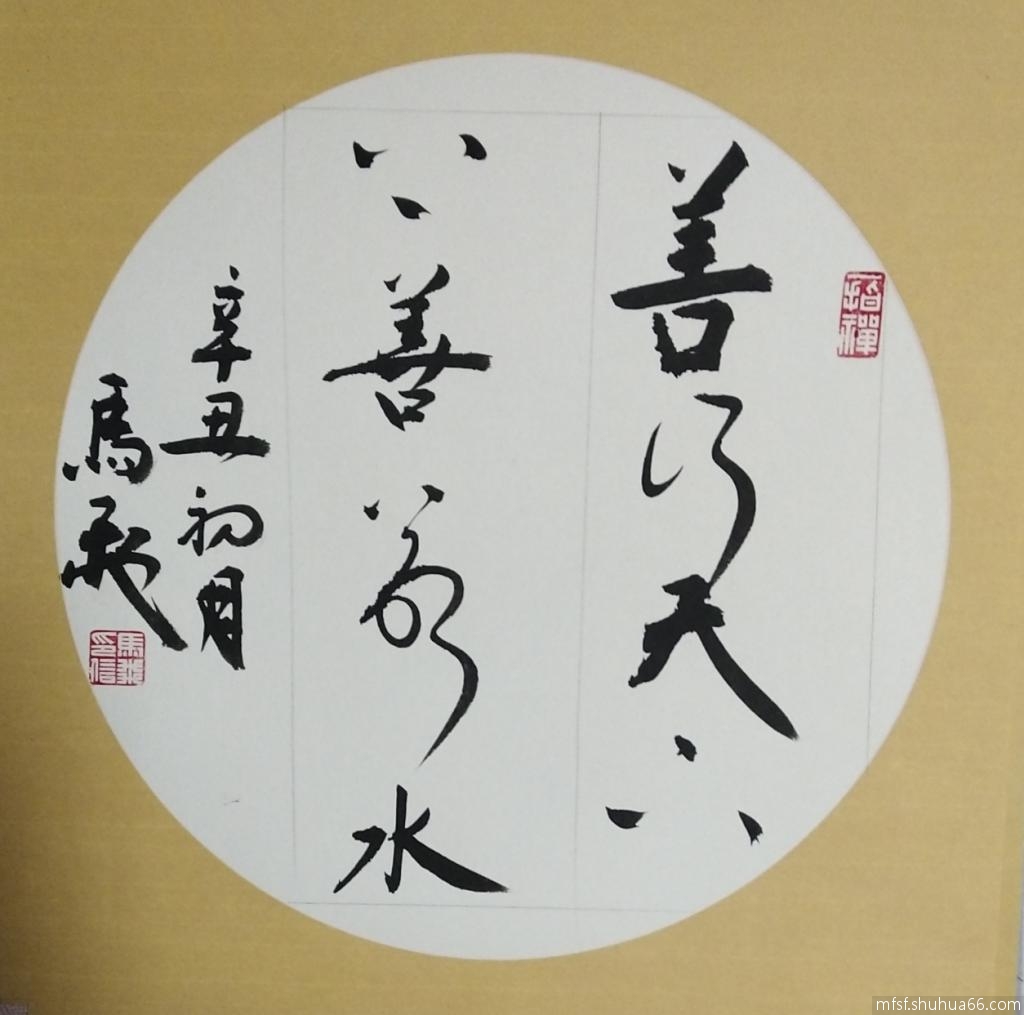 善行天下
上善若水
辛丑初月
馬飛
馬飛印信
mfsf.shuhua66.com